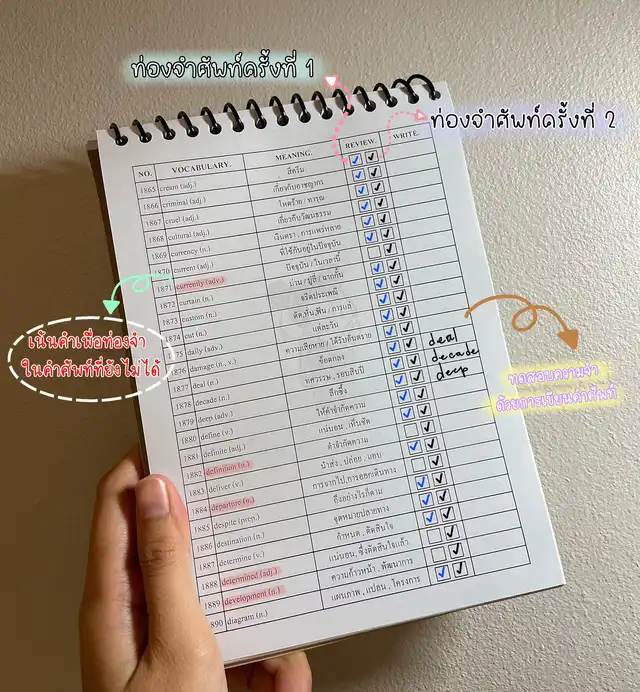 ท่องจำศัพท์ครั้งที่ 1
ท่องจำศัพท์ครั้งที่ 2
NO. VOCABULARY. MEANING. REVIEW. WRITE.
1865 cream (adj.) สีครีม
1866 criminal (adj.) เกี่ยวกับอาชญากร
1867 cruel (adj.) โหดร้าย / ทารุณ
1868 cultural (adj.) เกี่ยวกับวัฒนธรรม
1869 currency (n.) เงินตรา , การแพร่หลาย
1870 current (adj.) ที่ใช้กันอยู่ในปัจจุบัน
1871 currently (adv.) ปัจจุบัน / ในเวลานี้
1872 curtain (n.) ม่าน / มู่ลี่ / ฉากกั้น
1873 custom (n.) จารีตประเพณี
1874 cut (n.) ตัด,หั่น,ฟัน / การแล่
1875 daily (adv.) แต่ละวัน
1876 damage (n., v.) ความเสียหาย / ได้รับอันตราย
1877 deal (n.) ข้อตกลง deal
1878 decade (n.) ทศวรรษ , รอบสิบปี decade
1879 deep (adv.) ลึกซึ้ง deep
1880 define (v.) ให้คำจำกัดความ
1881 definite (adj.) แน่นอน , เห็นชัด
1882 definition (n.) คำจำกัดความ
1883 deliver (v.) นำส่ง , ปล่อย , มอบ
1884 departure (n.) การจากไป,การออกเดินทาง
1885 despite (prep.) ถึงอย่างไรก็ตาม
1886 destination (n.) จุดหมายปลายทาง
1887 determine (v.) กำหนด , ตัดสินใจ
1888 determined (adj.) แน่นอน, ซึ่งตัดสินใจแล้ว
1889 development (n.) ความก้าวหน้า , พัฒนาการ
890 diagram (n.) แผนภาพ , แปลน , โครงการ
เน้นคำเพื่อท่องจำ
ในคำศัพท์ที่ยังไม่ได้
ทดสอบความจำ
ด้วยการเขียนคำศัพท์